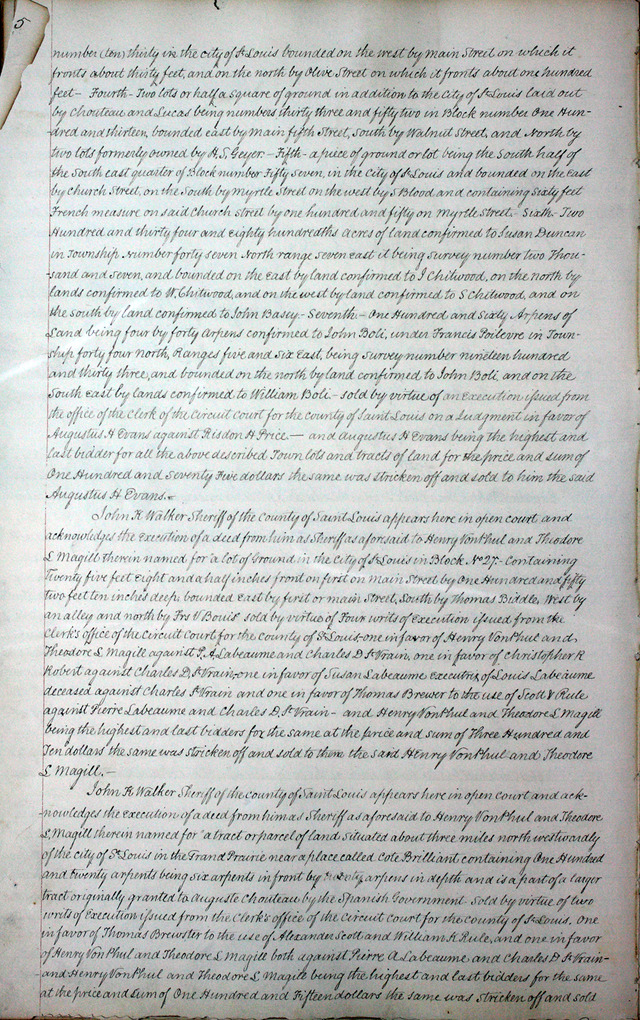 5
number (ten) thirty in the city of St Louis bounded on the west by main Street on which it
fronts about thirty feet, and on the north by Olive Street on which it fronts about one hundred
feet – Fourth – Two lots or half a square of ground in addition to the City of St Louis laid out
by Chouteau and Lucas being numbers thirty three and fifty two in Block number One Hun-
dred and thirteen, bounded east by main fifth Street, South by Walnut Street, and North by
two lots formerly owned by H. S. Geyer. – Fifth – a piece of ground or lot being the South half of
the South east quarter of Block number Fifty Seven, in the City of St Louis and bounded on the East
by Church Street, on the South by Myrtle Street on the west by S Blood and containing Sixty feet
French measure on said Church Street by one hundred and fifty on Myrtle Street. – Sixth – Two
Hundred and thirty four and eighty hundredths acres of land confirmed to Susan Duncan
in Township Number forty seven North range Seven east it being Survey number two Thou-
sand and Seven, and bounded on the East by land confirmed to J Chitwood, on the north by
lands confirmed to W. Chitwood, and on the west by land confirmed to S Chitwood, and on
the South by land confirmed to John Basey. – Seventh – One Hundred and Sixty Arpens of
Land being four by forty Arpens confirmed to John Boli, under Francis Poilevre in Town-
ship forty four north, Ranges five and Six East, being Survey number nineteen hundred
and thirty three, and bounded on the north by land confirmed to John Boli, and on the
South east by lands confirmed to William Boli – sold by virtue of an Execution issued from
the office of the Clerk of the Circuit Court for the county of Saint Louis on a Judgment in favor of
Augustus H Evans against Risdon H. Price — and Augustus H Evans being the highest and
last bidder for all the above described Town lots and tracts of land for the price and sum of
One Hundred and Seventy Five dollars the same was stricken off and sold to him the said
Augustus H Evans.
John K Walker Sheriff of the county of Saint Louis appears here in open court and
acknowledges the Execution of a deed from him as Sheriff as aforesaid to Henry Von Phul and Theodore
L Magill therein named for "a lot of Ground in the City of St Louis in Block No 27. Containing
Twenty five feet Eight and a half inches front on first on Main Street by One Hundred and fifty
two feet ten inches deep: bounded East by first or main Street, South by Thomas Biddle, West by
an alley and north by Frs V Bouis" sold by virtue of Four writs of Execution issued from the
Clerk's office of the Circuit Court for the county of St Louis – one in favor of Henry Von Phul and
Theodore L Magill against P. A Labeaume and Charles D. St Vrain, one in favor of Christopher R
Robert against Charles D. St Vrain, one in favor of Susan Labeaume Executrix of Louis Labeaume
deceased against Charles St Vrain and one in favor of Thomas Brewer to the use of Scott & Rule
against Pierre Labeaume and Charles D. St Vrain – and Henry Von Phul and Theodore L Magill
being the highest and last bidders for the same at the price and sum of Three Hundred and
Ten dollars the same was stricken off and sold to them the said Henry Von Phul and Theodore
L Magill. –
John K Walker Sheriff of the county of Saint Louis appears here in open court and ack-
nowledges the execution of a deed from him as Sheriff as aforesaid to Henry Von Phul and Theodore
L Magill therein named for "a tract or parcel of land situated about three miles north westwardly
of the city of St Louis in the Grand Prairie near a place called Cote Brilliant containing One Hundred
and twenty arpents being six arpents in front by arpens in depth and is a part of a larger
tract originally granted to Auguste Chouteau by the Spanish Government. Sold by virtue of two
writs of Execution issued from the Clerk's office of the Circuit Court for the county of St Louis. One
in favor of Thomas Brewster to the use of Alexander Scott and William K Rule, and one in favor
of Henry Von Phul and Theodore L Magill both against Pierre A Labeaume and Charles D. St Vrain –
and Henry Von Phul and Theodore L Magill being the highest and last bidders for the same
at the price and sum of One Hundred and Fifteen dollars the same was stricken off and sold